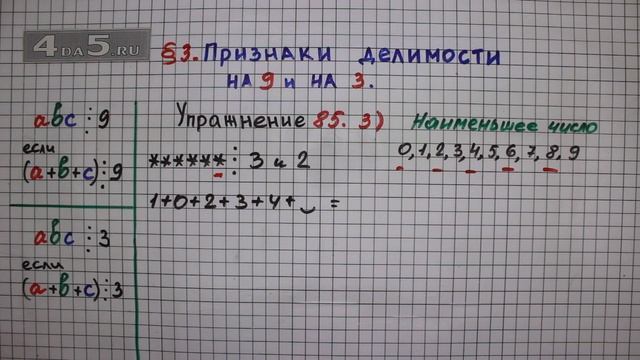 4DA5.RU
§3. Признаки делимости
на 9 и на 3.
abc ⋮ 9
если
(a+b+c) ⋮ 9
abc ⋮ 3
если
(a+b+c) ⋮ 3
Упражнение 85. 3) Наименьшее число
****** ⋮ 3 и 2
0, 1, 2, 3, 4, 5, 6, 7, 8, 9
1+0+2+3+4+ =